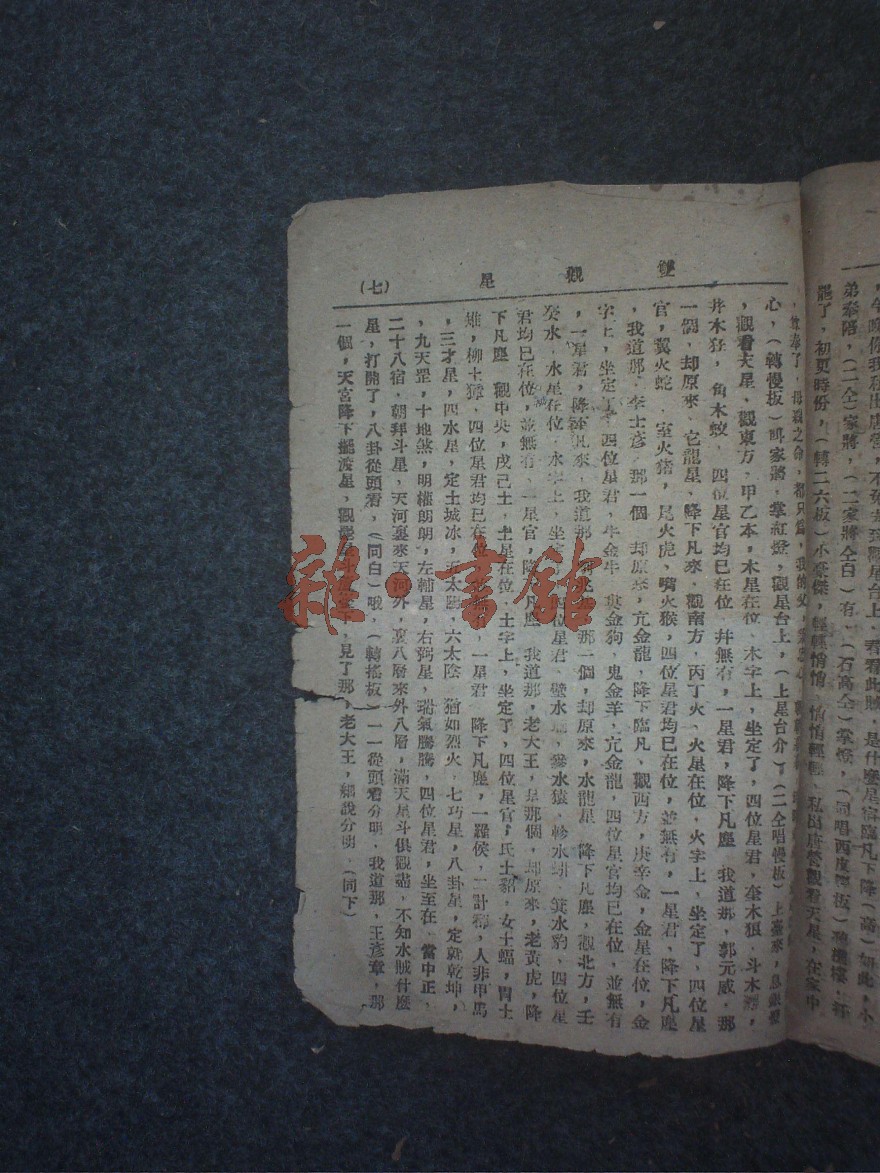 雙觀星
(七)
，今晚你我私出唐營，不免去到觀星台上，看看此賊，是什麼星宿臨凡下降（高）如此，小
弟奉陪，（二仝）家將，（二家將仝白）有，（石高仝）掌燈，（同唱西皮
罷了，初更時份，（轉二六板）小豪傑，輕輕悄悄，悄悄輕輕，私出唐營觀看天星，在家中
奉了，母親之命，都只為，我的父
心，（轉慢板）叫家將，掌紅燈，觀星台上，（上星台介）（二仝唱慢板）上臺來
，觀看天星，觀東方，甲乙木，木星在位，木字上，坐定了，四位星君，奎木狼，斗木獬，
井木犴，角木蛟，四位星官均已在位，並無有，一星君，降下凡塵，我道那，郭元威，那
一個，却原來，它龍星，降下凡來，觀南方，丙丁火，火星在位，火字上，坐定了，四位星
官，翼火蛇，室火猪，尾火虎，嘴火猴，四位星君均已在位，並無有，一星君，降下凡塵
，我道那，李士彥，那一個，却原來，亢金龍，降下臨凡，觀西方，庚辛金，金星在位，金
字上，坐定了，四位星君，牛金牛，婁金狗，鬼金羊，亢金龍，四位星官均已在位，並無有
，一星君，降下凡來，我道那，那一個，却原來，水龍星，降下凡塵，觀北方，壬
癸水，水星在位，水字上，坐，四位星君，壁水，參水猿，軫水蚓，箕水豹，四位星
君均已在位，並無有，一星官，降下凡塵，我道那，老大王，是那個，却原來，老黃虎，降
下凡塵，觀中央，戊己土，土星在位，土字上，坐定了，四位星官，氐土貉，女土蝠，胃土
雉，柳土獐，四位星君均已在位，一星君，降下凡塵，一羅侯，二計都，人非甲馬
，三才星，四水星，定土城冰，五太陽，六太陰，猶如烈火，七巧星，八卦星，定就乾坤，
，九天罡，十地煞，明權朗朗，左輔星，右弼星，瑞氣騰騰，四位星君，坐至在，當中正，
二十八宿，朝拜斗星，天河裏來天河外，裏八層來外八層，滿天星斗俱觀盡，不知水賊什麼
星，打開了，八卦從頭看，（同白）哦，（轉搖板）一一從頭看分明，我道那，王彥章，那
一個，天宮降下擺渡星，觀罷，見了那，老大王，細說分明，（同下）